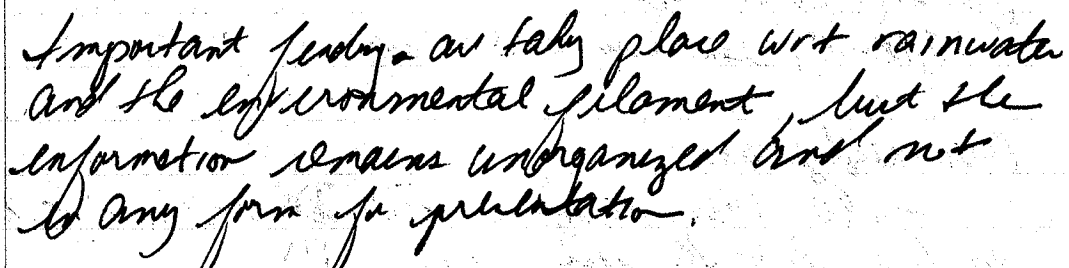 Important findings are taking place wrt rainwater
and the environmental filament, but the
information remains unorganized and not
in any form for presentation.